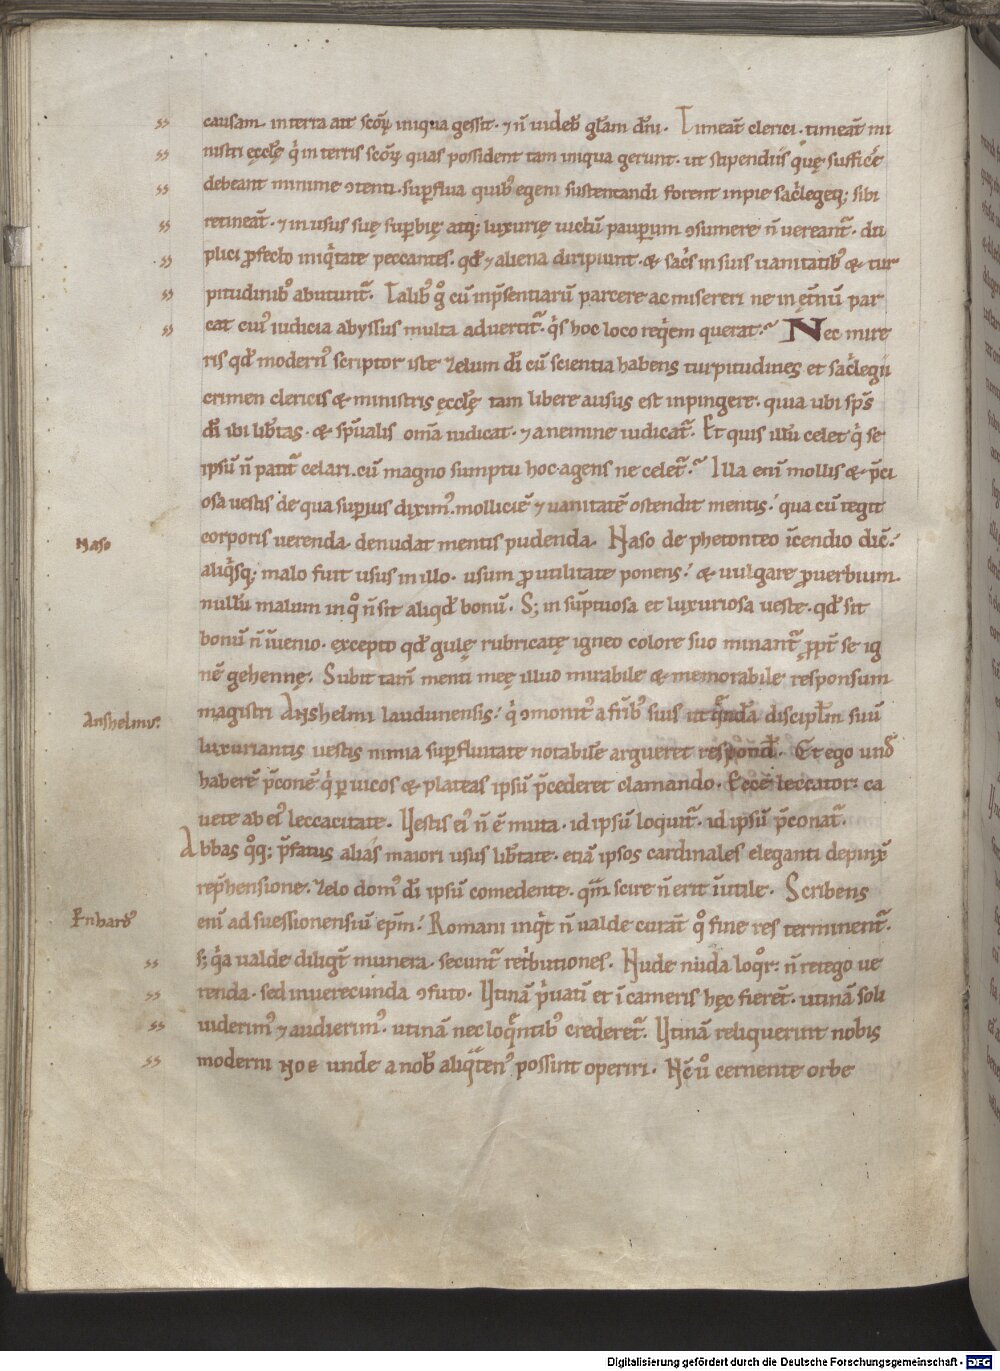 causam. in terra ait scoꝝ iniqua gessit. ⁊ n̄ uideb̄ gl̄am dn̄i. Timeat̄ clerici. timeat̄ mi
nistri eccl̄ę q̇ in terris scoꝝ quas possident tam iniqua gerunt. ut stipendiis quę sufficẽ
debeant minime ↄtenti. suꝑflua quib᾽ egeni sustentandi forent inpie sac̓legeq; sibi
retineat̄. ⁊ in usus suę suꝑbię atq; luxurię uictū pauꝑum ↄsumere n̄ uereant᷑. du
plici ꝓfecto iniq̇tate peccantes. qd̄ ⁊ aliena diripiunt. & sac̓s in suis uanitatib᾽ & tur
pitudinib᾽ abutunt᷑. Talib᾽ g̊ cū inp̄sentiarū parcere ac misereri ne in ęt̓nū par
cat cui᾽ iudicia abyssus multa aduertit᷑. q̇s hoc loco req̇em querat? Nec mire
ris qd̄ modern᾽ scriptor iste zelum dī cū scientia habens turpitudines et sac̓legii
crimen clericis & ministris ęccl̄ę tam libere ausus est inpingere. quia ubi sp̄s
dī ibi lib̓tas. & sp̄ualis om̄a iudicat. ⁊ a nemine iudicat᷑. Et quis illū celet q̇ se
ipsū n̄ patit᷑ celari. cū magno sumptu hoc agens ne celet᷑? Illa enī mollis & p̄ci
osa uestis de qua suꝑius dixim᾽. molliciē ⁊ uanitatē ostendit mentis. qua cū tegit
corporis uerenda. denudat mentis pudenda. Naso de phetonteo īcendio dic̄.
Naso
aliq̇sq; malo fuit usus in illo. usum ꝓ utilitate ponens. & uulgare ꝓuerbium.
nullū malum in q̊ n̄ sit aliqd̄ bonū. S; in sūptuosa et luxuriosa ueste. qd̄ sit
bonū n̄ īuenio. excepto qd̄ gulę rubricatę igneo colore suo minant᷑ ꝓpt̄ se ig
nē gehennę. Subit tam̄ menti meę illud mirabile & memorabile responsum
magistri Anshelmi laudunensis. q̇ ↄmonit᾽ a fr̄ib᾽ suis ut quēdā discipl̄m suū
Anshelmus.
luxuriantis uestis nimia suꝑfluitate notabilē argueret respondit. Et ego und̄
haberē p̄conē q̇ ꝑ uicos & plateas ipsū p̄cederet clamando. Ecce leccator. ca
uete ab ei᾽ leccacitate. Vestis ei᾽ n̄ ē muta. id ipsū loquit᷑. id ipsū p̄conat᷑.
Abbas q̊q; p̄fatus alias maiori usus lib̓tate. etiā ipsos cardinales eleganti depinx̄
rep̄hensione. zelo dom᾽ dī ipsū comedente. qm̄ scire n̄ erit īutile. Scribens
enī ad suessionensiū ep̄m. Romani inq̇t n̄ ualde curat̄ q̊ fine res terminent᷑.
Bnhard᾽
s; q̇a ualde diligt̄ munera. secunt᷑ ret̓butiones. Nude nuda loq̊r. n̄ retego ue
renda. sed inuerecunda ↄfuto. Vtinā p̓uatī et ī cameris hęc fieret̄. utinā soli
uiderim᾽ ⁊ audierim᾽. utinā nec loq̄ntib᾽ crederet᷑. Vtinā reliquerint nobis
moderni noe unde a nob̄ aliq̄ten᾽ possint operiri. Nc̄ ů cernente orbe
Digitalisierung gefördert durch die Deutsche Forschungsgemeinschaft - DFG